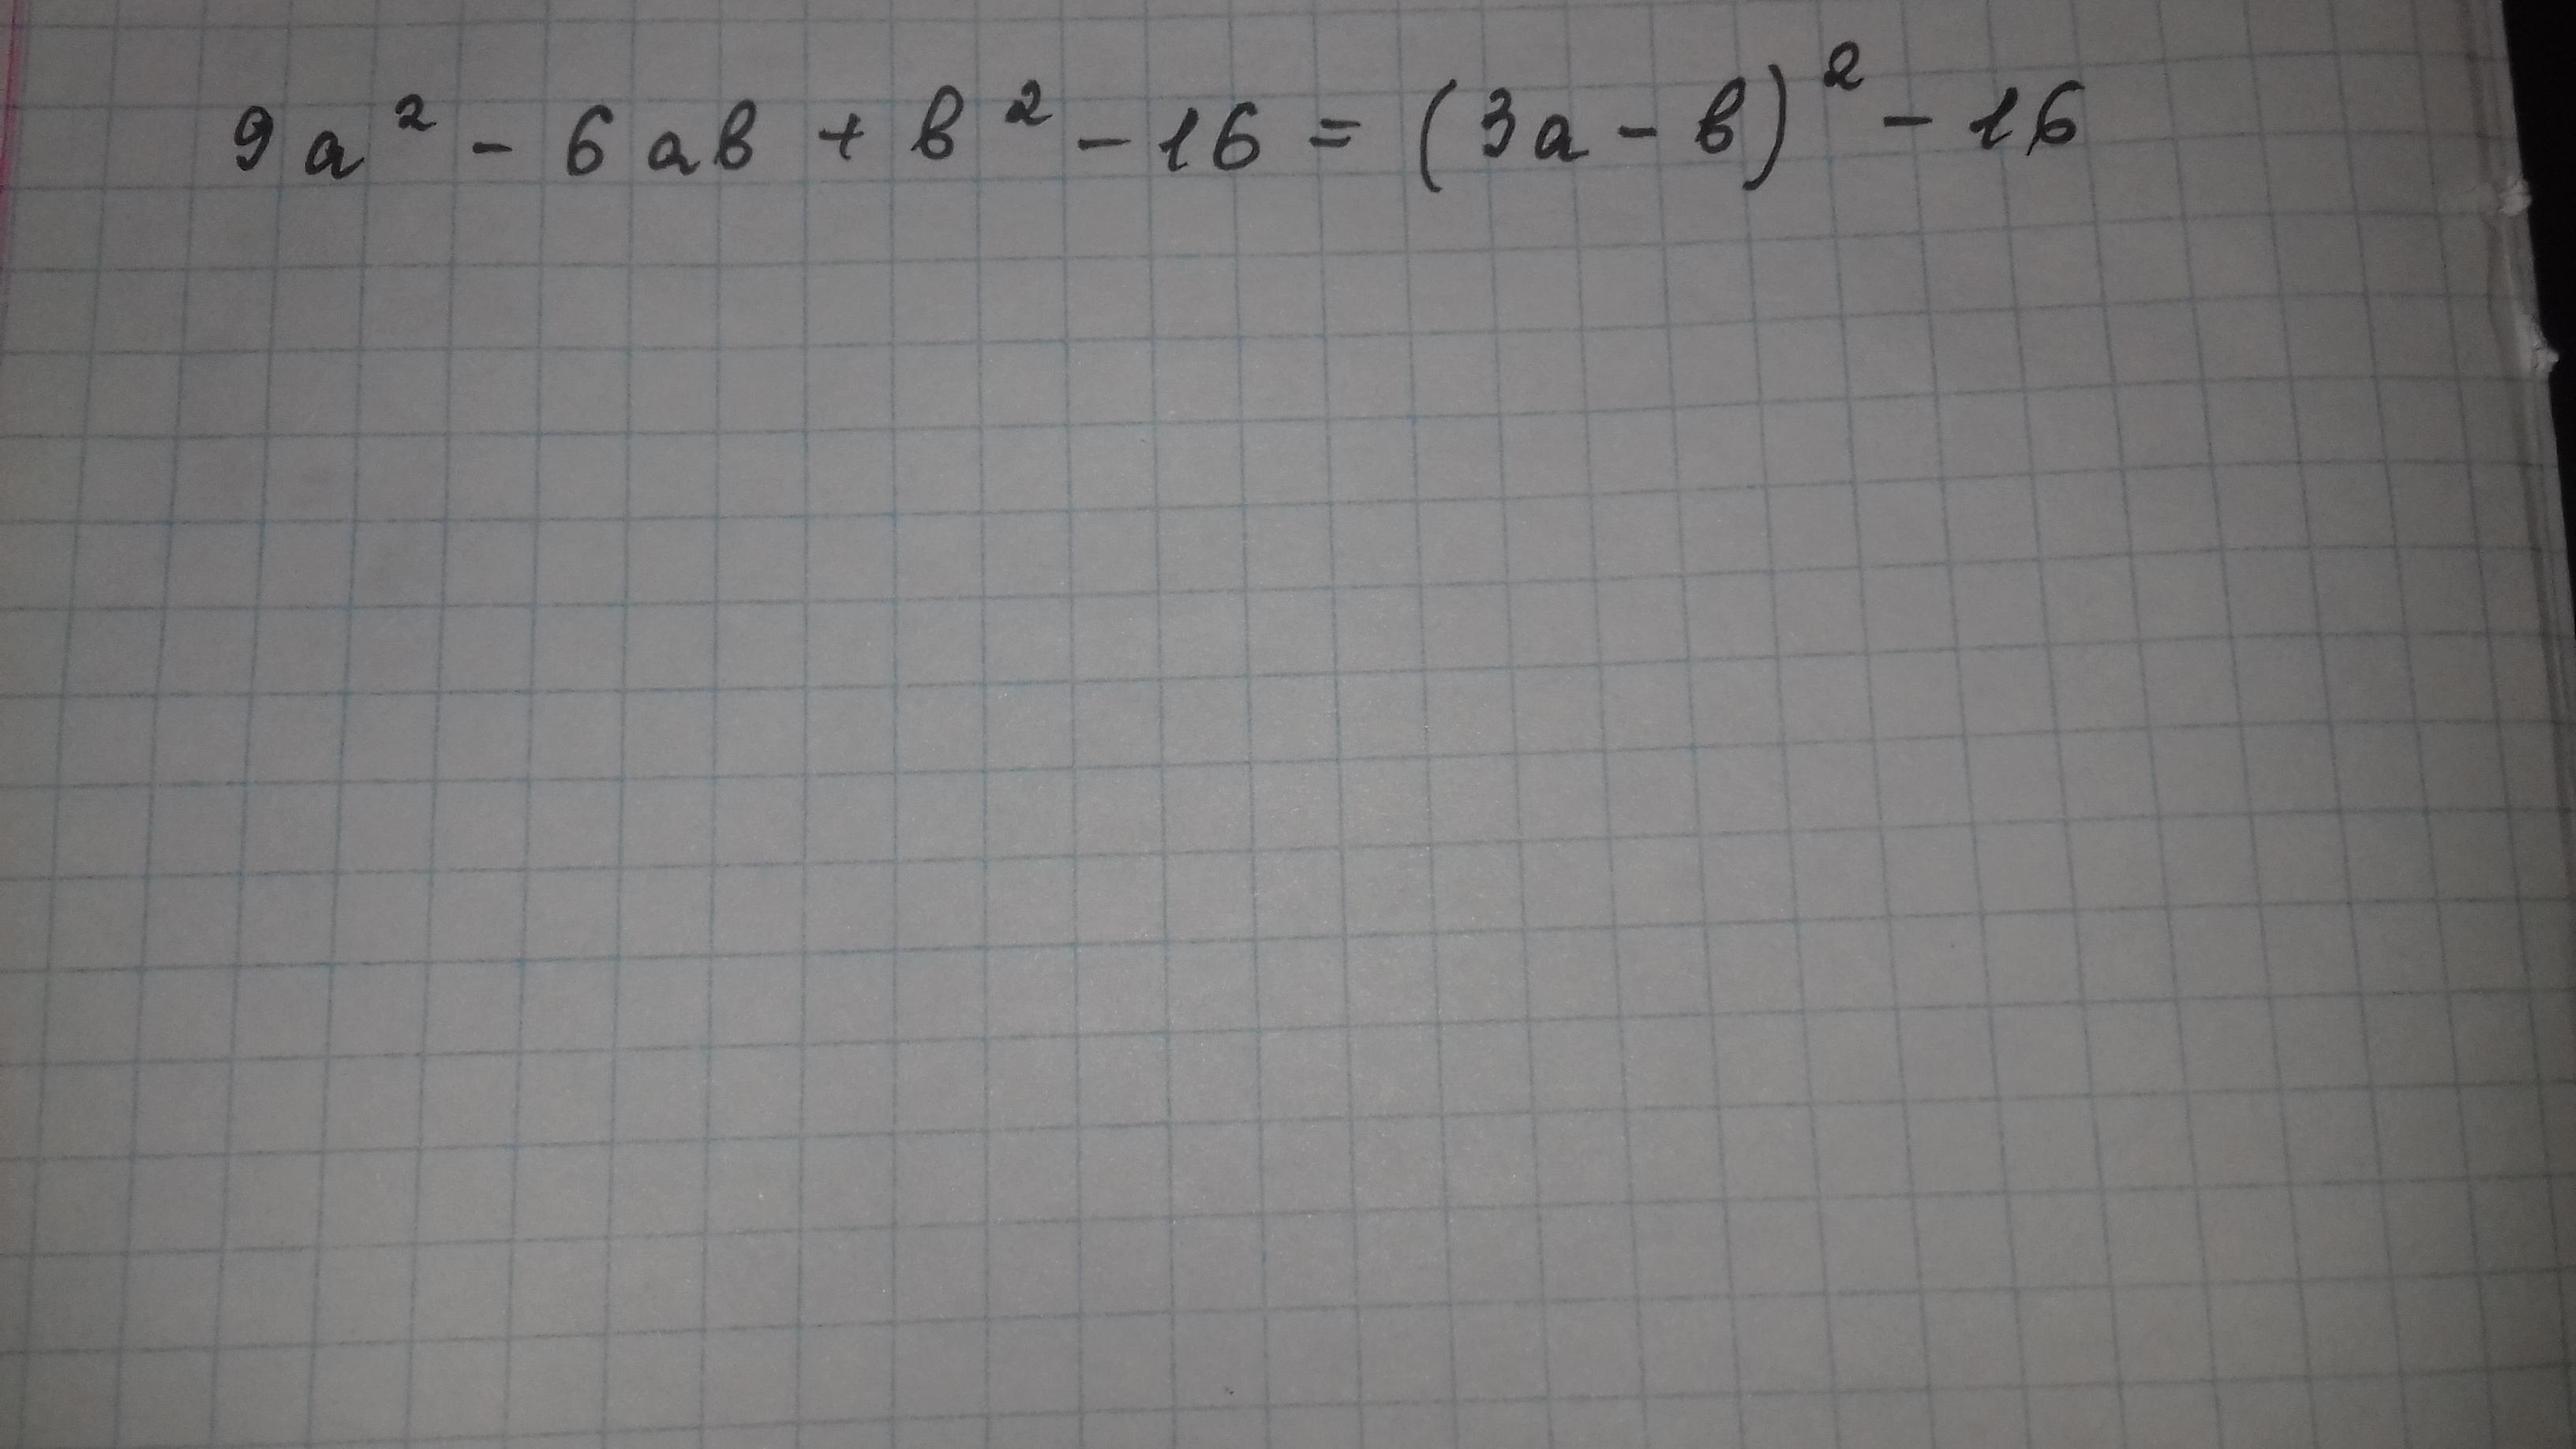 9a² - 6ab + b² - 16 = (3a - b)² - 16